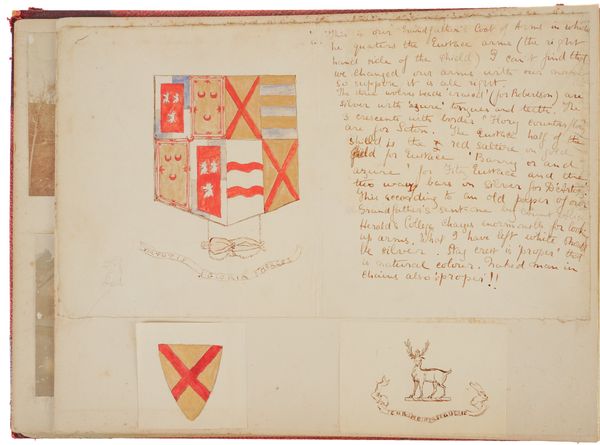 This is our Grandfather's Coat of Arms in which
he quarters the Eustace arms (the right
hand side of the shield) I can't find that
we changed our arms with our name
so suppose it is all right.
The three wolves heads 'erased' (for Robertson) are
silver with 'azure' tongues and teeth. The
3 crescents with border 'Flory counter flory'
are for Seton. The Eustace half of the
shield is the red saltire on gold
field for Eustace 'Barry or and
azure' for Fitz Eustace and the
two wavy bars on silver for D'Arby
This according to an old paper of our
Grandfather's
Herald's College charges enormously for look
up arms. What I have left white should
be silver. Stag crest is 'proper' that
is natural colour. Naked man in
chains also 'proper'!!
Gloria